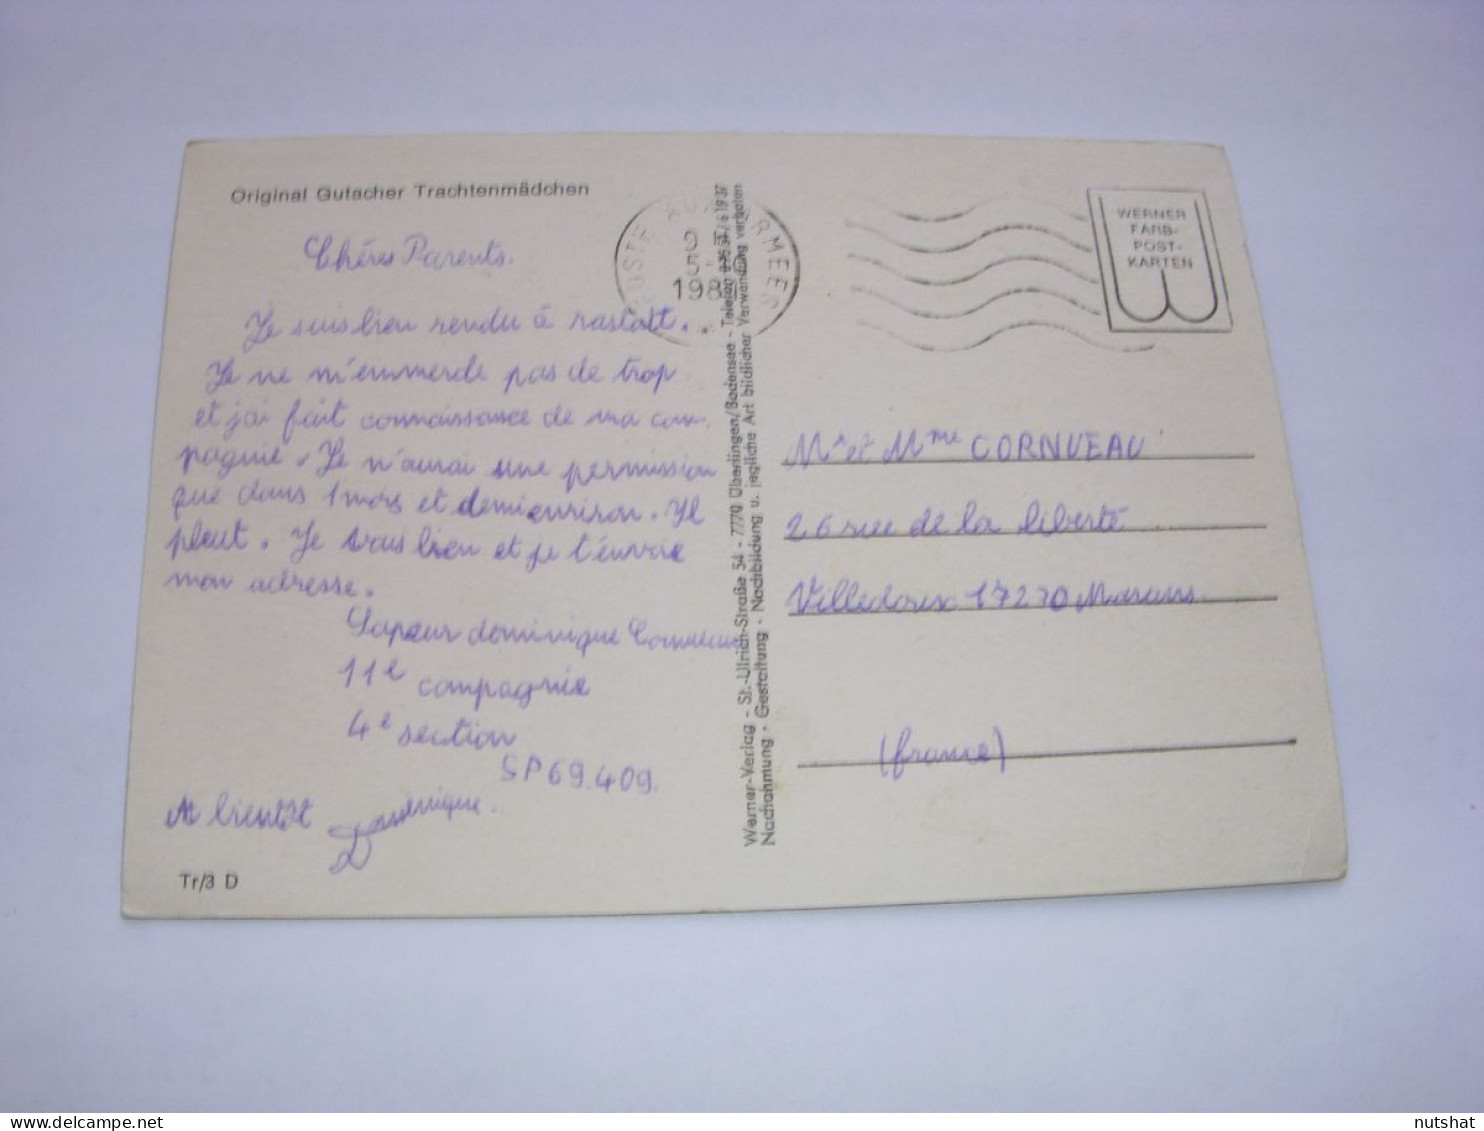 Original Gutacher Trachtenmädchen
Chéres Parents.
Je suis bien rendu à rastatt.
Je ne m'emmerde pas de trop
et j'ai fait connaissance de ma com-
pagnie. Je n'aurai une permission
que dans 1 mois et demi environ. Il
pleut. Je vous bien et je t'envoie
mon adresse.
Sapeur dominique Cornueau
11e compagnie
4e section
SP 69.409.
A bientôt Dominique.
Tr/3 D
POSTE AUX ARMEES
9
5
198
WERNER
FARB-
POST-
KARTEN
Werner-Verlag - St.-Ulrich-Straße 54 - 7770 Überlingen/Bodensee - Telefon
Nachahmung - Gestaltung - Nachbildung u. jegliche Art bildlicher Verwendung verboten
Mr et Mme CORNUEAU
26 rue de la liberté
Villedoux 17230 Marans
(france)
nutshat